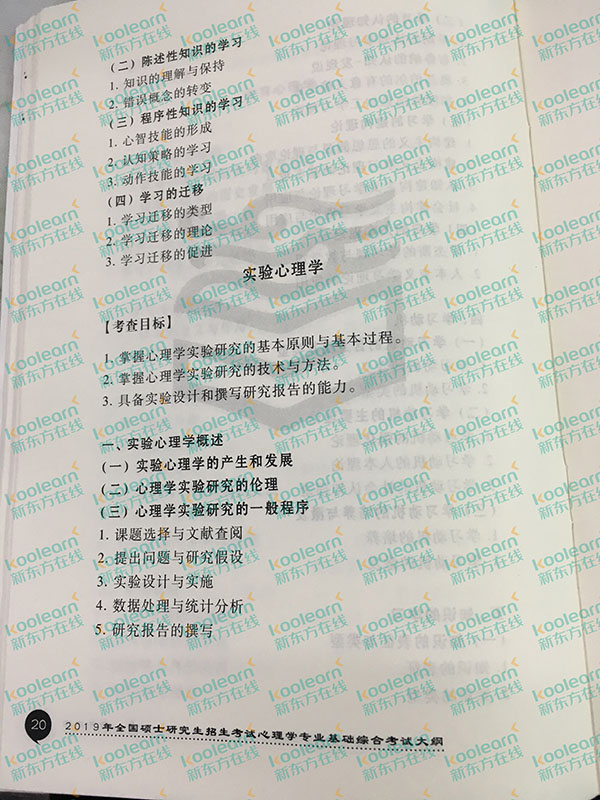 （二）陈述性知识的学习
1. 知识的理解与保持
2. 错误概念的转变
（三）程序性知识的学习
1. 心智技能的形成
2. 认知策略的学习
3. 动作技能的学习
（四）学习的迁移
1. 学习迁移的类型
2. 学习迁移的理论
3. 学习迁移的促进
实验心理学
【考查目标】
1. 掌握心理学实验研究的基本原则与基本过程。
2. 掌握心理学实验研究的技术与方法。
3. 具备实验设计和撰写研究报告的能力。
一、实验心理学概述
（一）实验心理学的产生和发展
（二）心理学实验研究的伦理
（三）心理学实验研究的一般程序
1. 课题选择与文献查阅
2. 提出问题与研究假设
3. 实验设计与实施
4. 数据处理与统计分析
5. 研究报告的撰写
20 2019年全国硕士研究生招生考试心理学专业基础综合考试大纲
koolearn
新东方在线